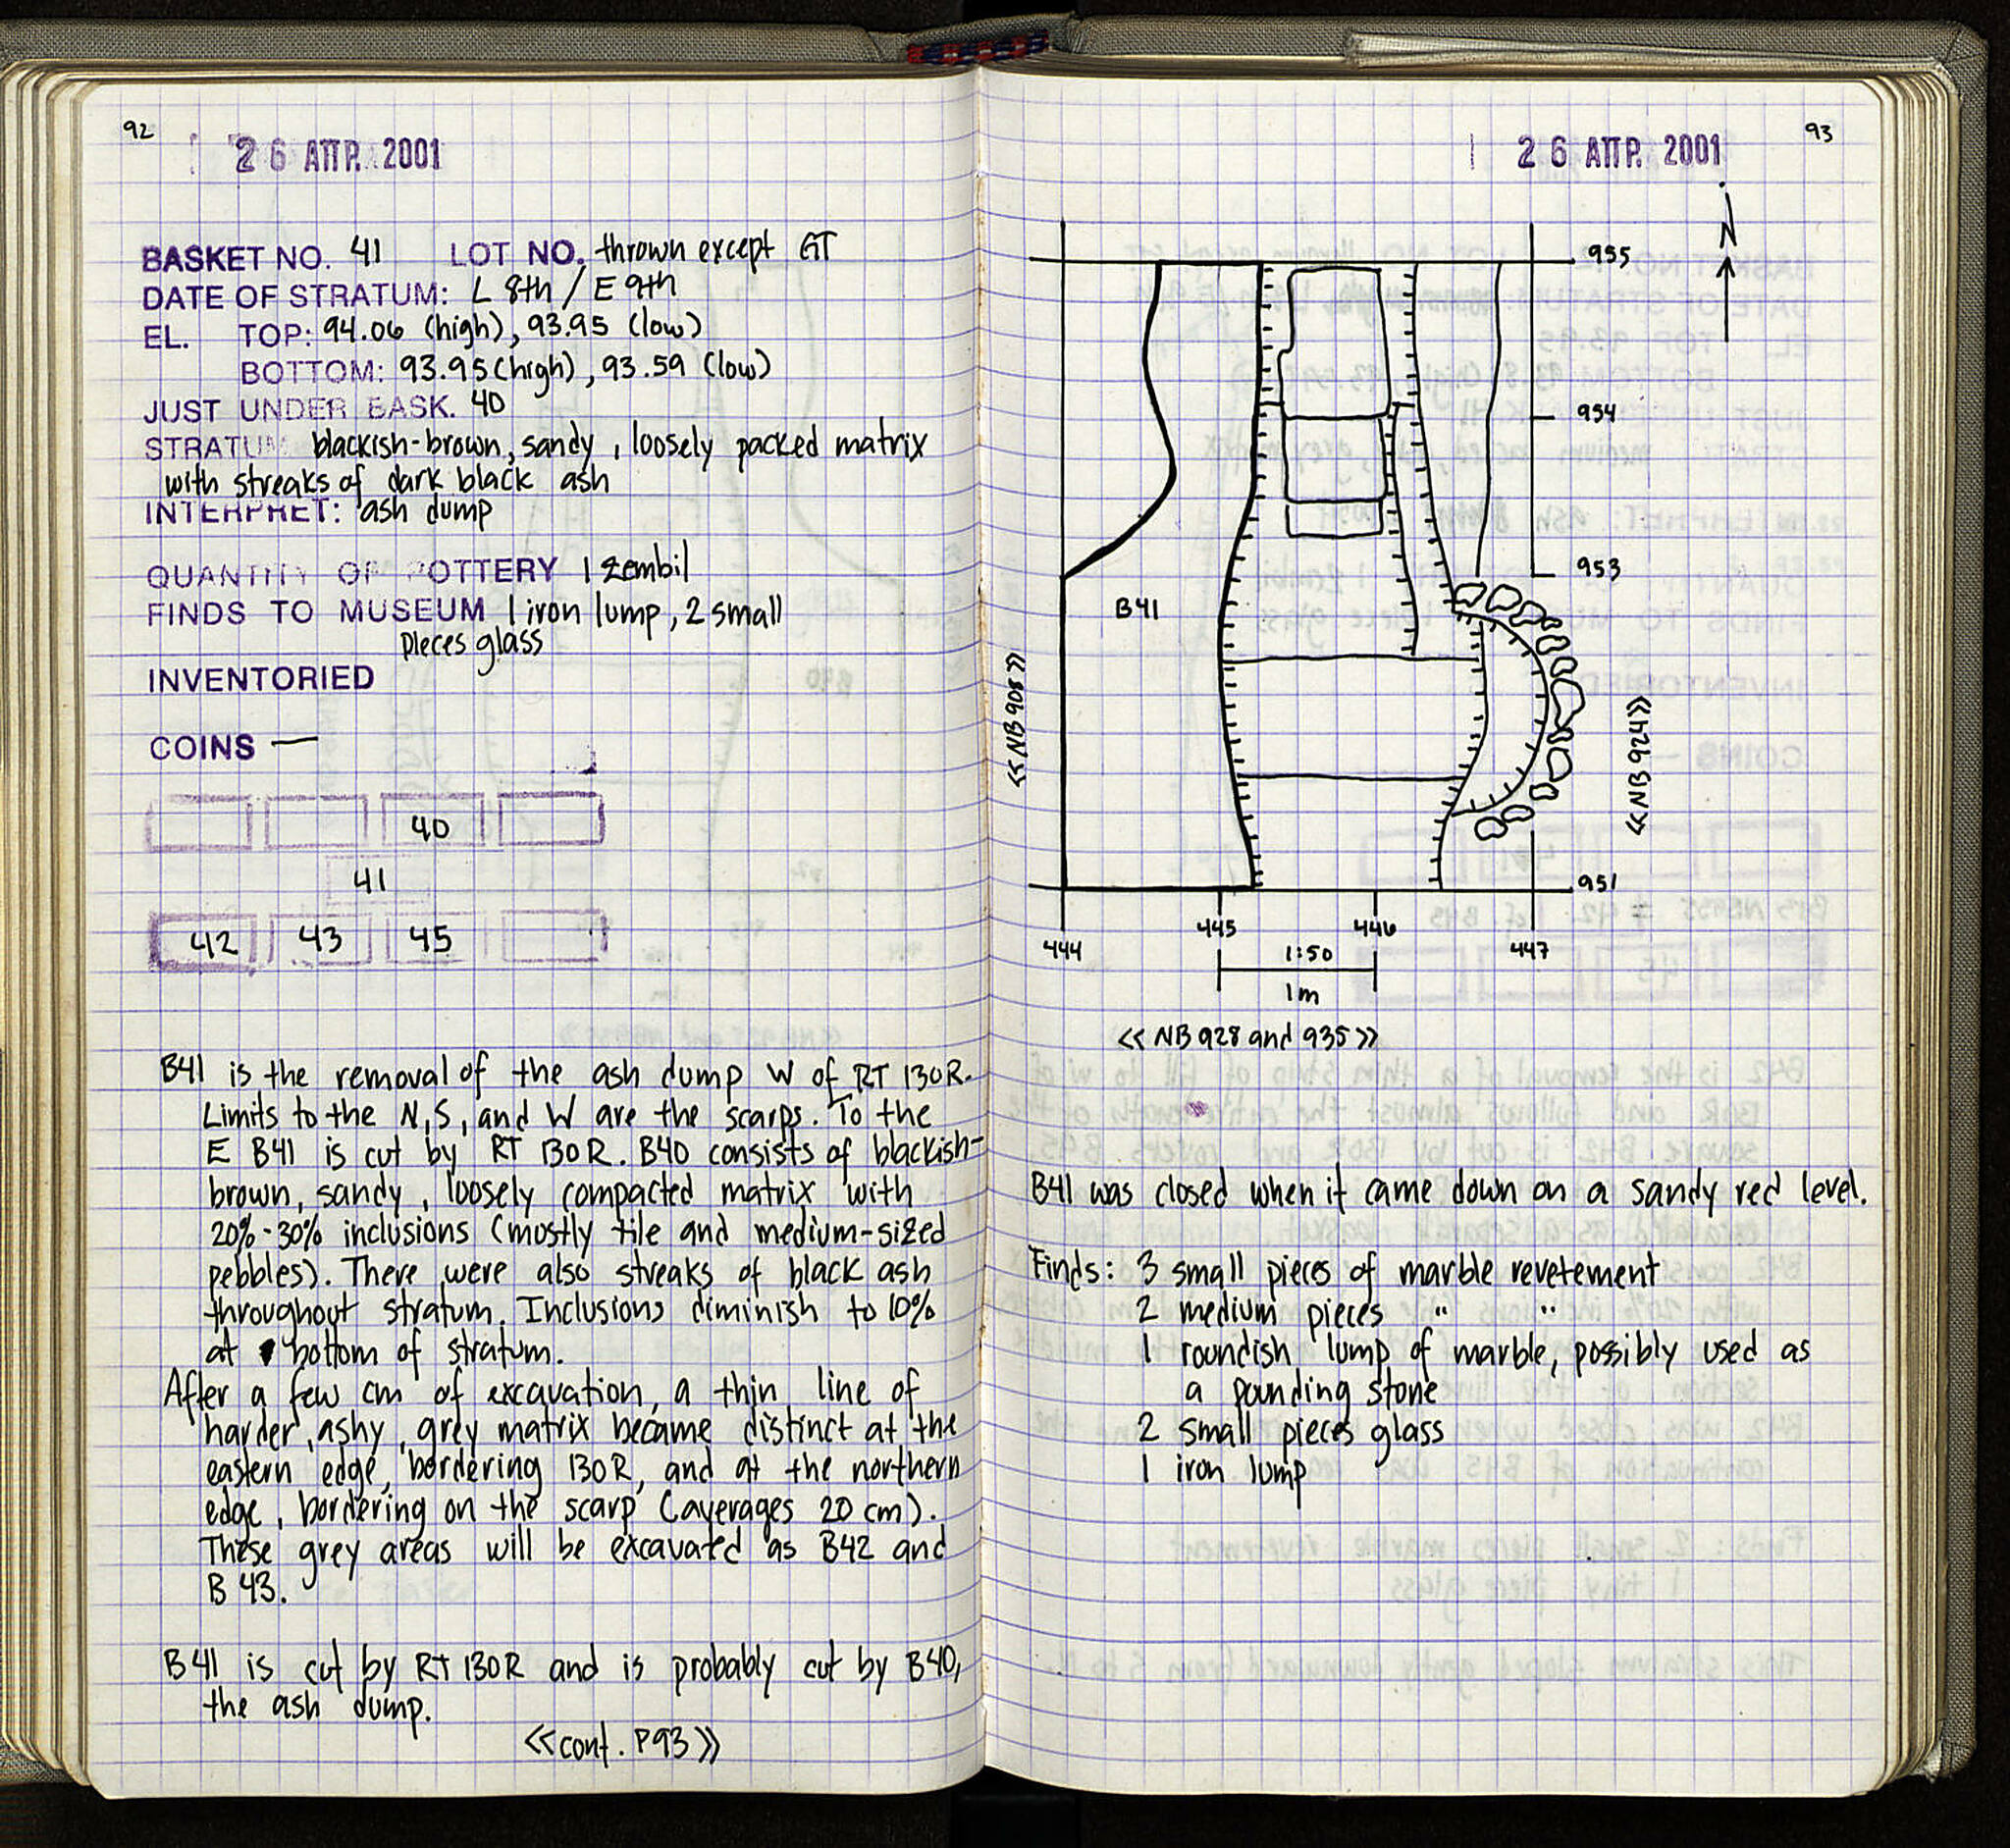 92
26 ΑΠΡ. 2001
BASKET NO. 41 LOT NO. thrown except GT
DATE OF STRATUM: L 8th / E 9th
EL. TOP: 94.06 (high), 93.95 (low)
BOTTOM: 93.95 (high), 93.59 (low)
JUST UNDER BASK. 40
STRATUM blackish-brown, sandy, loosely packed matrix
with streaks of dark black ash
INTERPRET: ash dump
QUANTITY OF POTTERY 1 zembil
FINDS TO MUSEUM 1 iron lump, 2 small
pieces glass
INVENTORIED
COINS —
40
41
42 43 45
B41 is the removal of the ash dump W of RT 130R.
Limits to the N, S, and W are the scarps. To the
E B41 is cut by RT 130R. B40 consists of blackish-
brown, sandy, loosely compacted matrix with
20%-30% inclusions (mostly tile and medium-sized
pebbles). There were also streaks of black ash
throughout stratum. Inclusions diminish to 10%
at bottom of stratum.
After a few cm of excavation, a thin line of
harder, ashy, grey matrix became distinct at the
eastern edge, bordering 130R, and at the northern
edge, bordering on the scarp (averages 20 cm).
These grey areas will be excavated as B42 and
B43.
B41 is cut by RT 130R and is probably cut by B40,
the ash dump.
<<cont. P93>>
93
26 ΑΠΡ. 2001
N
955
954
953
B41
<<NB 908>>
<<NB 924>>
951
444 445 446 447
1:50
1m
<<NB 928 and 935>>
B41 was closed when it came down on a sandy red level.
Finds: 3 small pieces of marble revetement
2 medium pieces " "
1 roundish lump of marble, possibly used as
a pounding stone
2 small pieces glass
1 iron lump